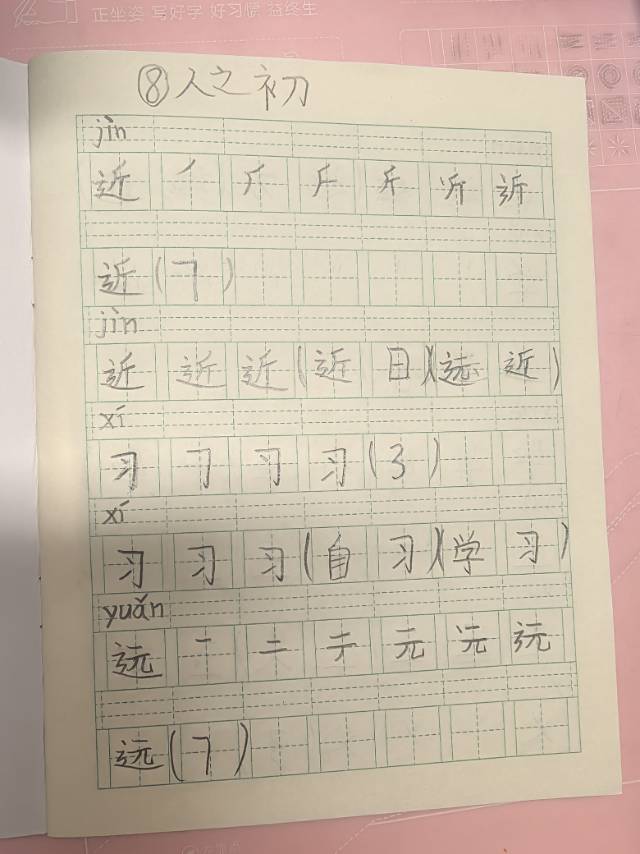 正坐姿 写好字 好习惯 益终生
⑧人之初
jìn
近 丿 𠂆 斤 斤 近
近(7)
jìn
近 近 近(近 日)(远 近)
xí
习 𠃌 习 习(3)
xí
习 习 习(自 习)(学 习)
yuǎn
远 一 二 テ 元 远
远(7)